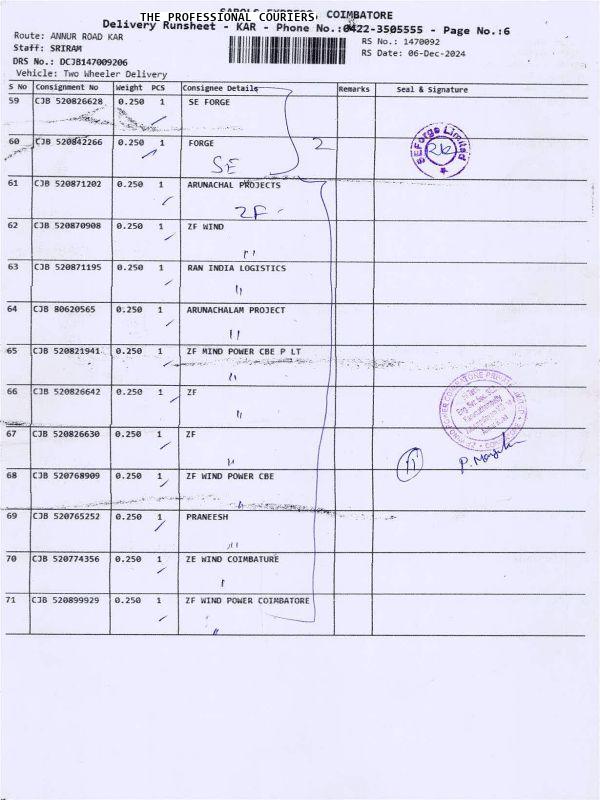 THE PROFESSIONAL COURIERS COIMBATORE
Delivery Runsheet - KAR - Phone No.:0422-3505555 - Page No.:6
Route: ANNUR ROAD KAR
RS No.: 1470092
Staff: SRIRAM
RS Date: 06-Dec-2024
DRS No.: DCJB147009206
Vehicle: Two Wheeler Delivery
S No Consignment No Weight PCS Consignee Details Remarks Seal & Signature
59 CJB 520826628 0.250 1 SE FORGE
60 CJB 520842266 0.250 1 FORGE 2
SE
SEForge Limited
61 CJB 520871202 0.250 1 ARUNACHAL PROJECTS
ZF
62 CJB 520870908 0.250 1 ZF WIND
"
63 CJB 520871195 0.250 1 RAN INDIA LOGISTICS
"
64 CJB 80620565 0.250 1 ARUNACHALAM PROJECT
"
65 CJB 520821941 0.250 1 ZF MIND POWER CBE P LT
"
66 CJB 520826642 0.250 1 ZF
"
67 CJB 520826630 0.250 1 ZF
"
11
68 CJB 520768909 0.250 1 ZF WIND POWER CBE
"
69 CJB 520765252 0.250 1 PRANEESH
"
70 CJB 520774356 0.250 1 ZE WIND COIMBATURE
"
71 CJB 520899929 0.250 1 ZF WIND POWER COIMBATORE
"